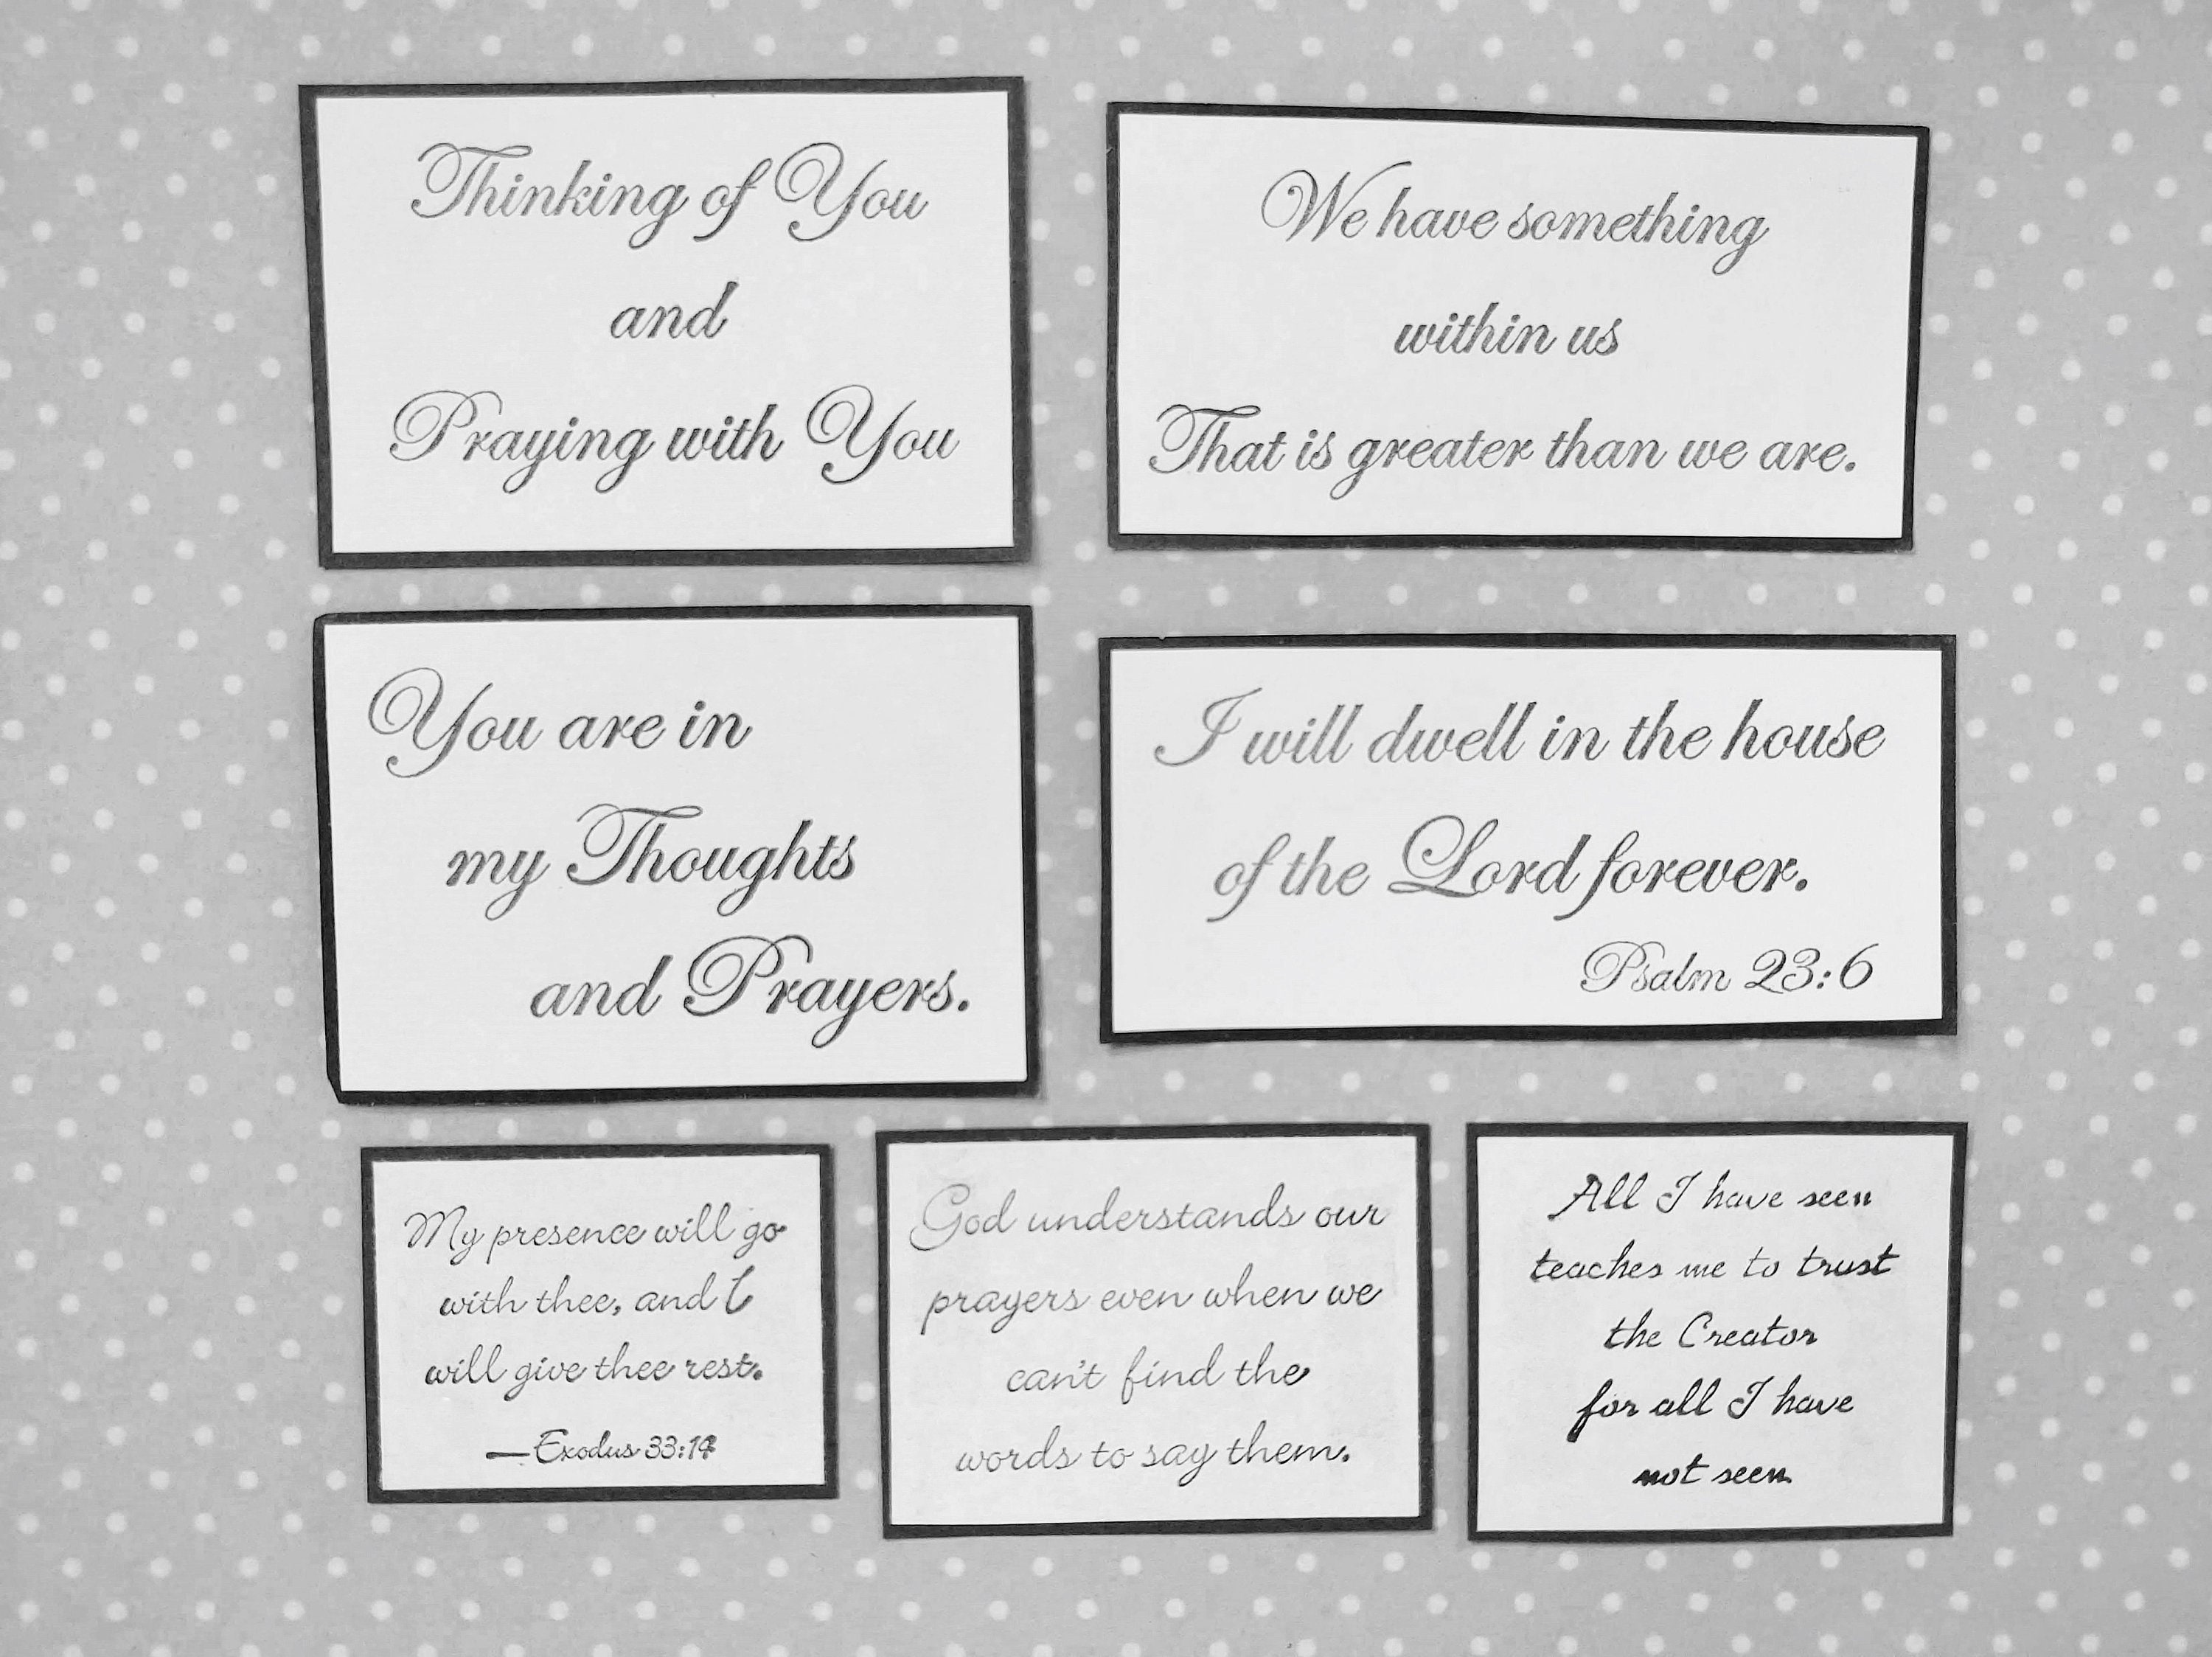 Thinking of You
and
Praying with You
We have something
within us
That is greater than we are.
You are in
my Thoughts
and Prayers.
I will dwell in the house
of the Lord forever.
Psalm 23:6
My presence will go
with thee, and I
will give thee rest.
—Exodus 33:14
God understands our
prayers even when we
can't find the
words to say them.
All I have seen
teaches me to trust
the Creator
for all I have
not seen